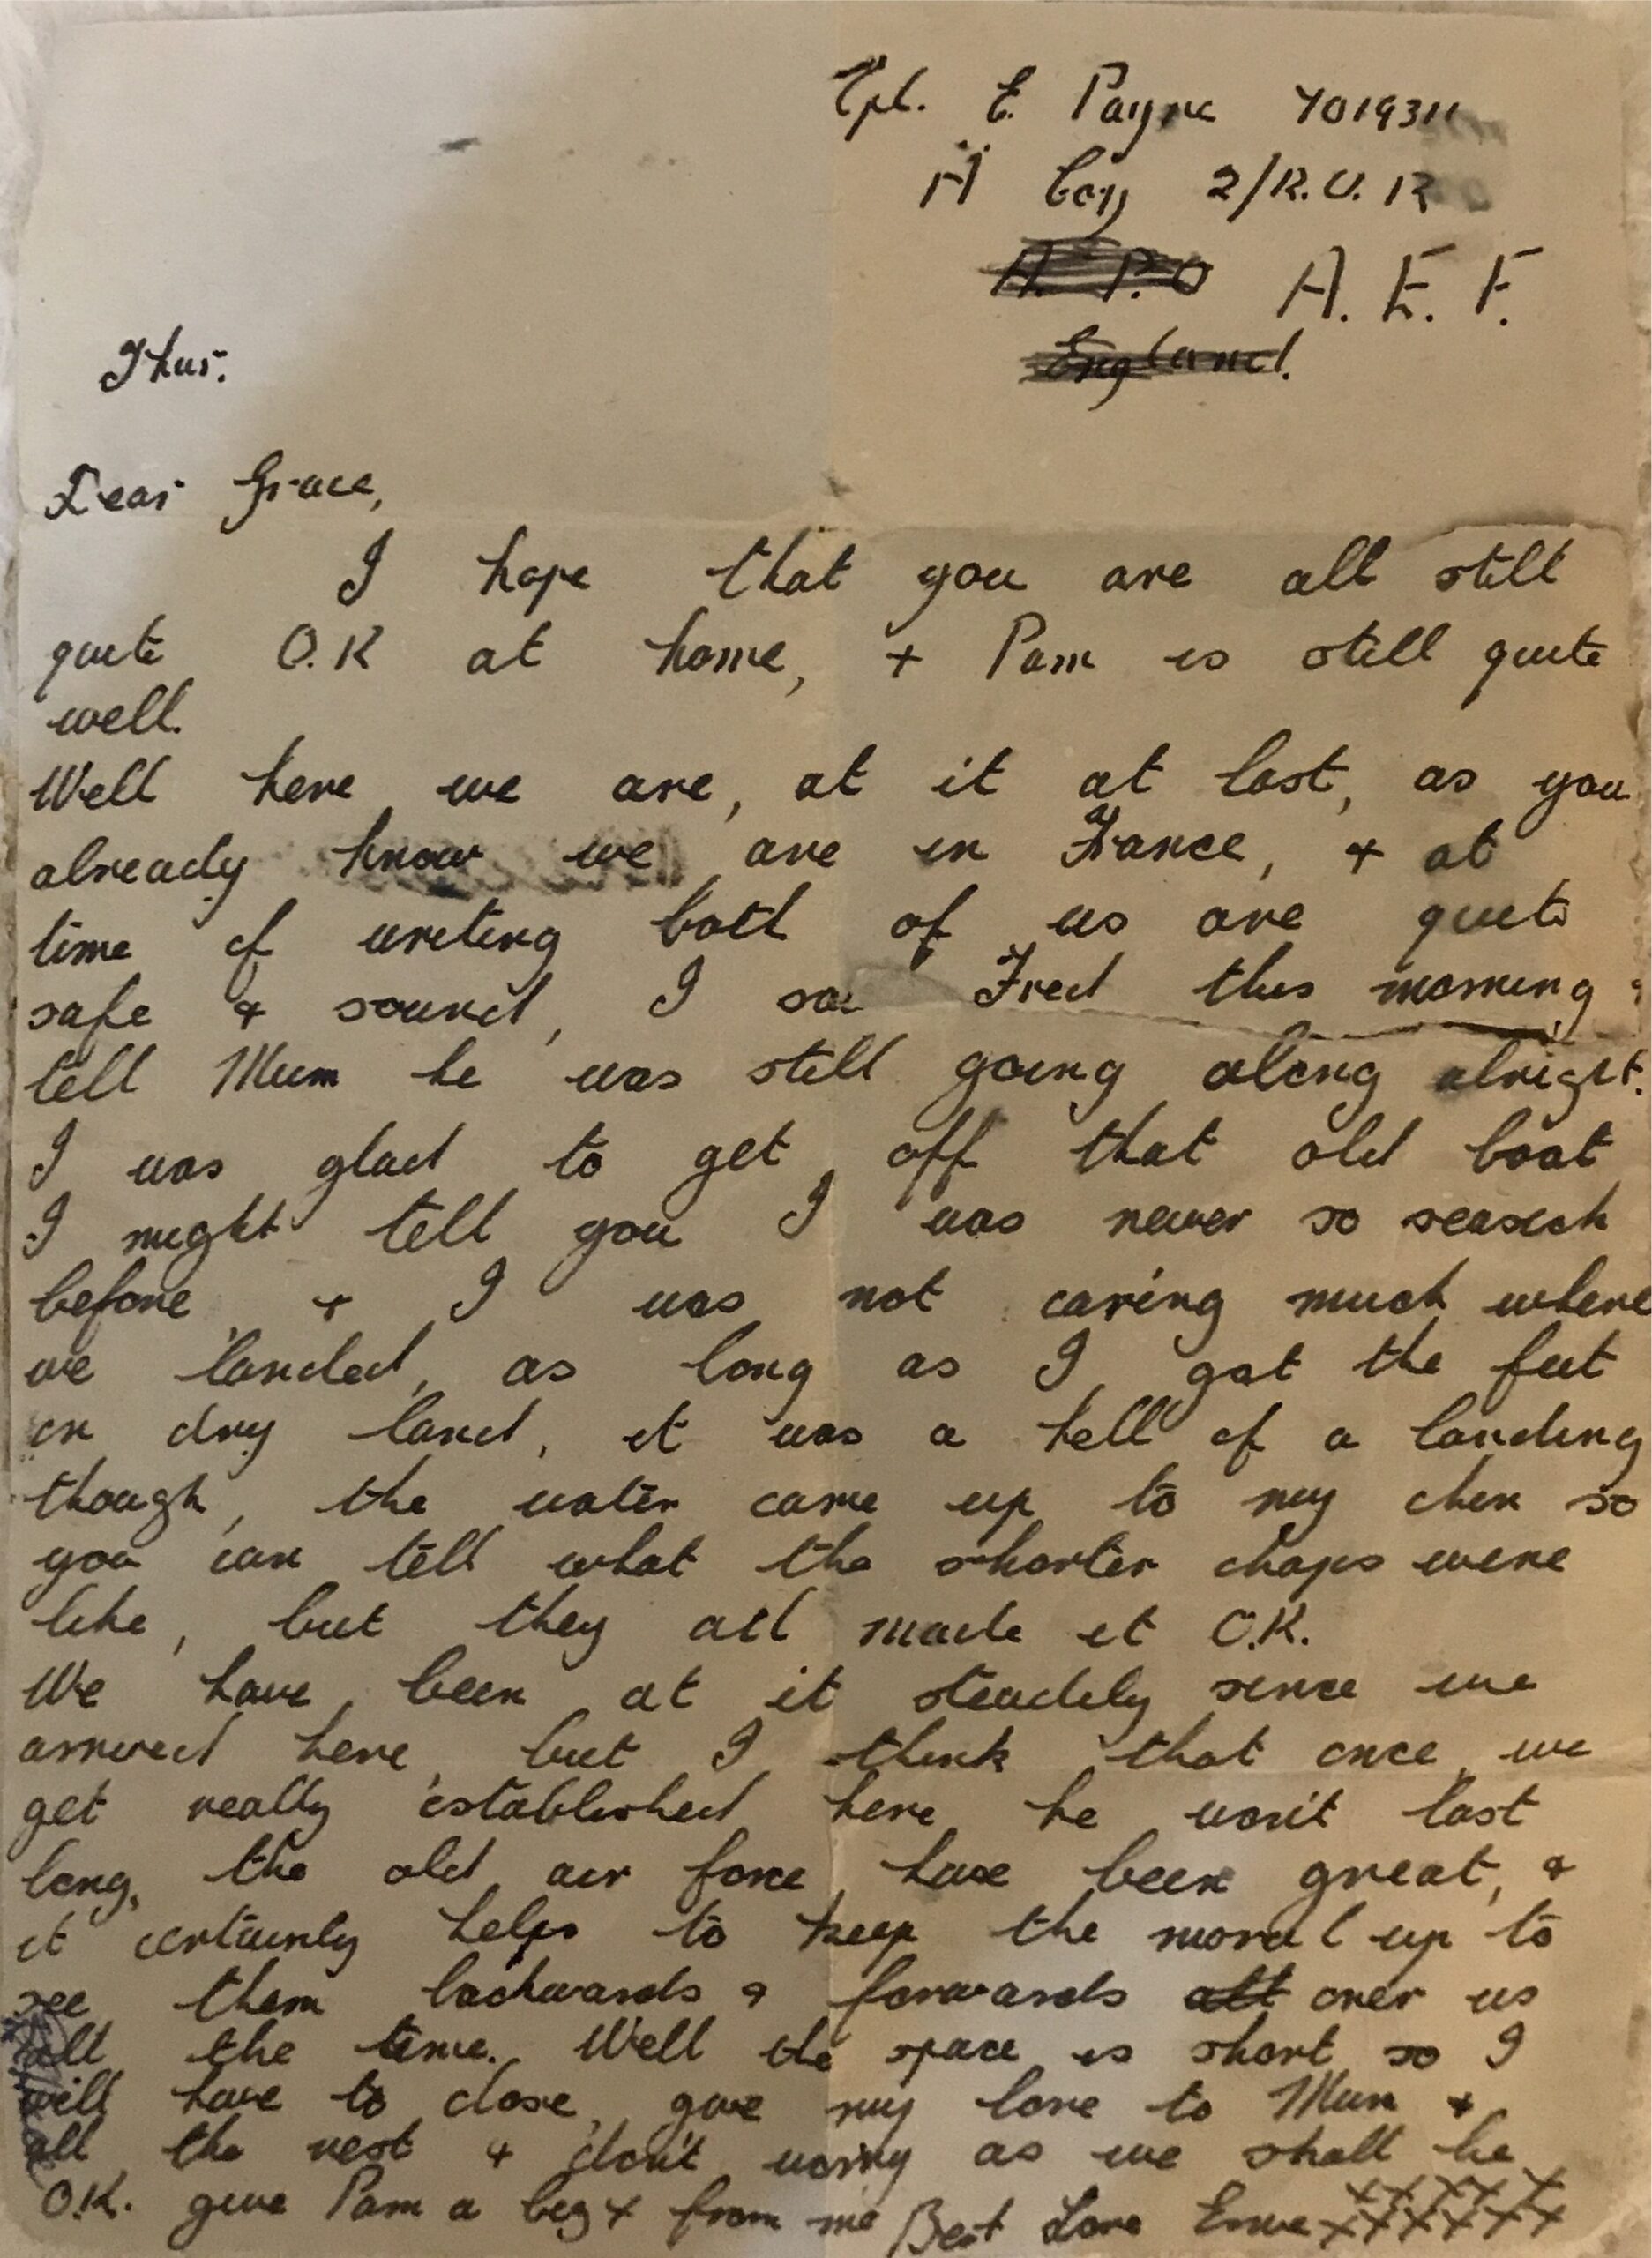 Cpl. E. Payne 7019311
"A" Coy 2/R.U.R
A.P.O A.E.F.
England.
Thur.
Dear Grace,
I hope that you are all still
quite O.K at home, + Pam is still quite
well.
Well here we are, at it at last, as you
already know we are in France, + at
time of writing both of us are quite
safe + sound, I saw Fred this morning
tell Mum he was still going along alright.
I was glad to get off that old boat
I might tell you I was never so seasick
before, + I was not caring much where
we landed, as long as I got the feet
on dry land, it was a hell of a landing
though, the water came up to my chin so
you can tell what the shorter chaps were
like, but they all made it O.K.
We have been at it steadily since we
arrived here, but I think that once we
get really established here he won't last
long, the old air force have been great, +
it certainly helps to keep the moral up to
see them backwards + forwards all over us
all the time. Well the space is short so I
will have to close, give my love to Mum +
all the rest + don't worry as we shall be
O.K. give Pam a big x from me Best Love Ernie xxxxxx
xxxxx